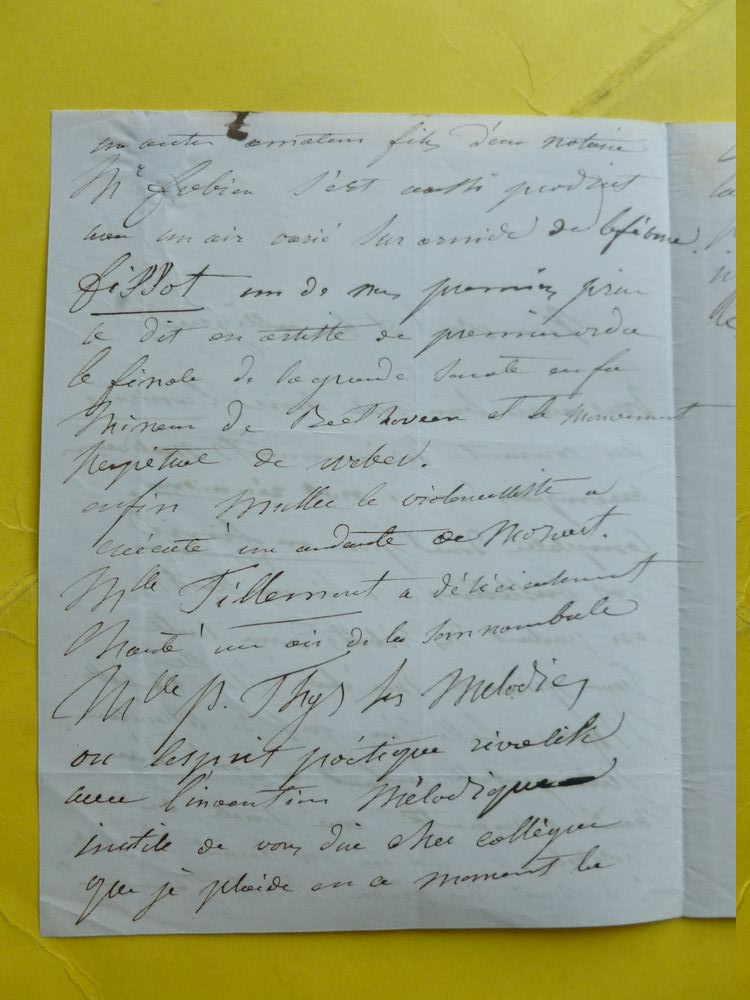 un autre amateur fils d'un notaire
Mr s'est aussi produit
avec un air varié sur armide de
fissot un de nos premiers prix
a dit en artiste de premier ordre
le finale de la grande Sonate en fa
mineur de Beethoven et le mouvement
perpétuel de weber.
enfin muller le violoncelliste a
exécuté un andante de Mozart.
Mlle Tillemont a délicieusement
chanté un air de la somnambule
Mlle p. Thys ses Mélodies
ou l'esprit poétique rivalise
avec l'invention Mélodique
inutile de vous dire cher collègue
que je plaide en ce moment la